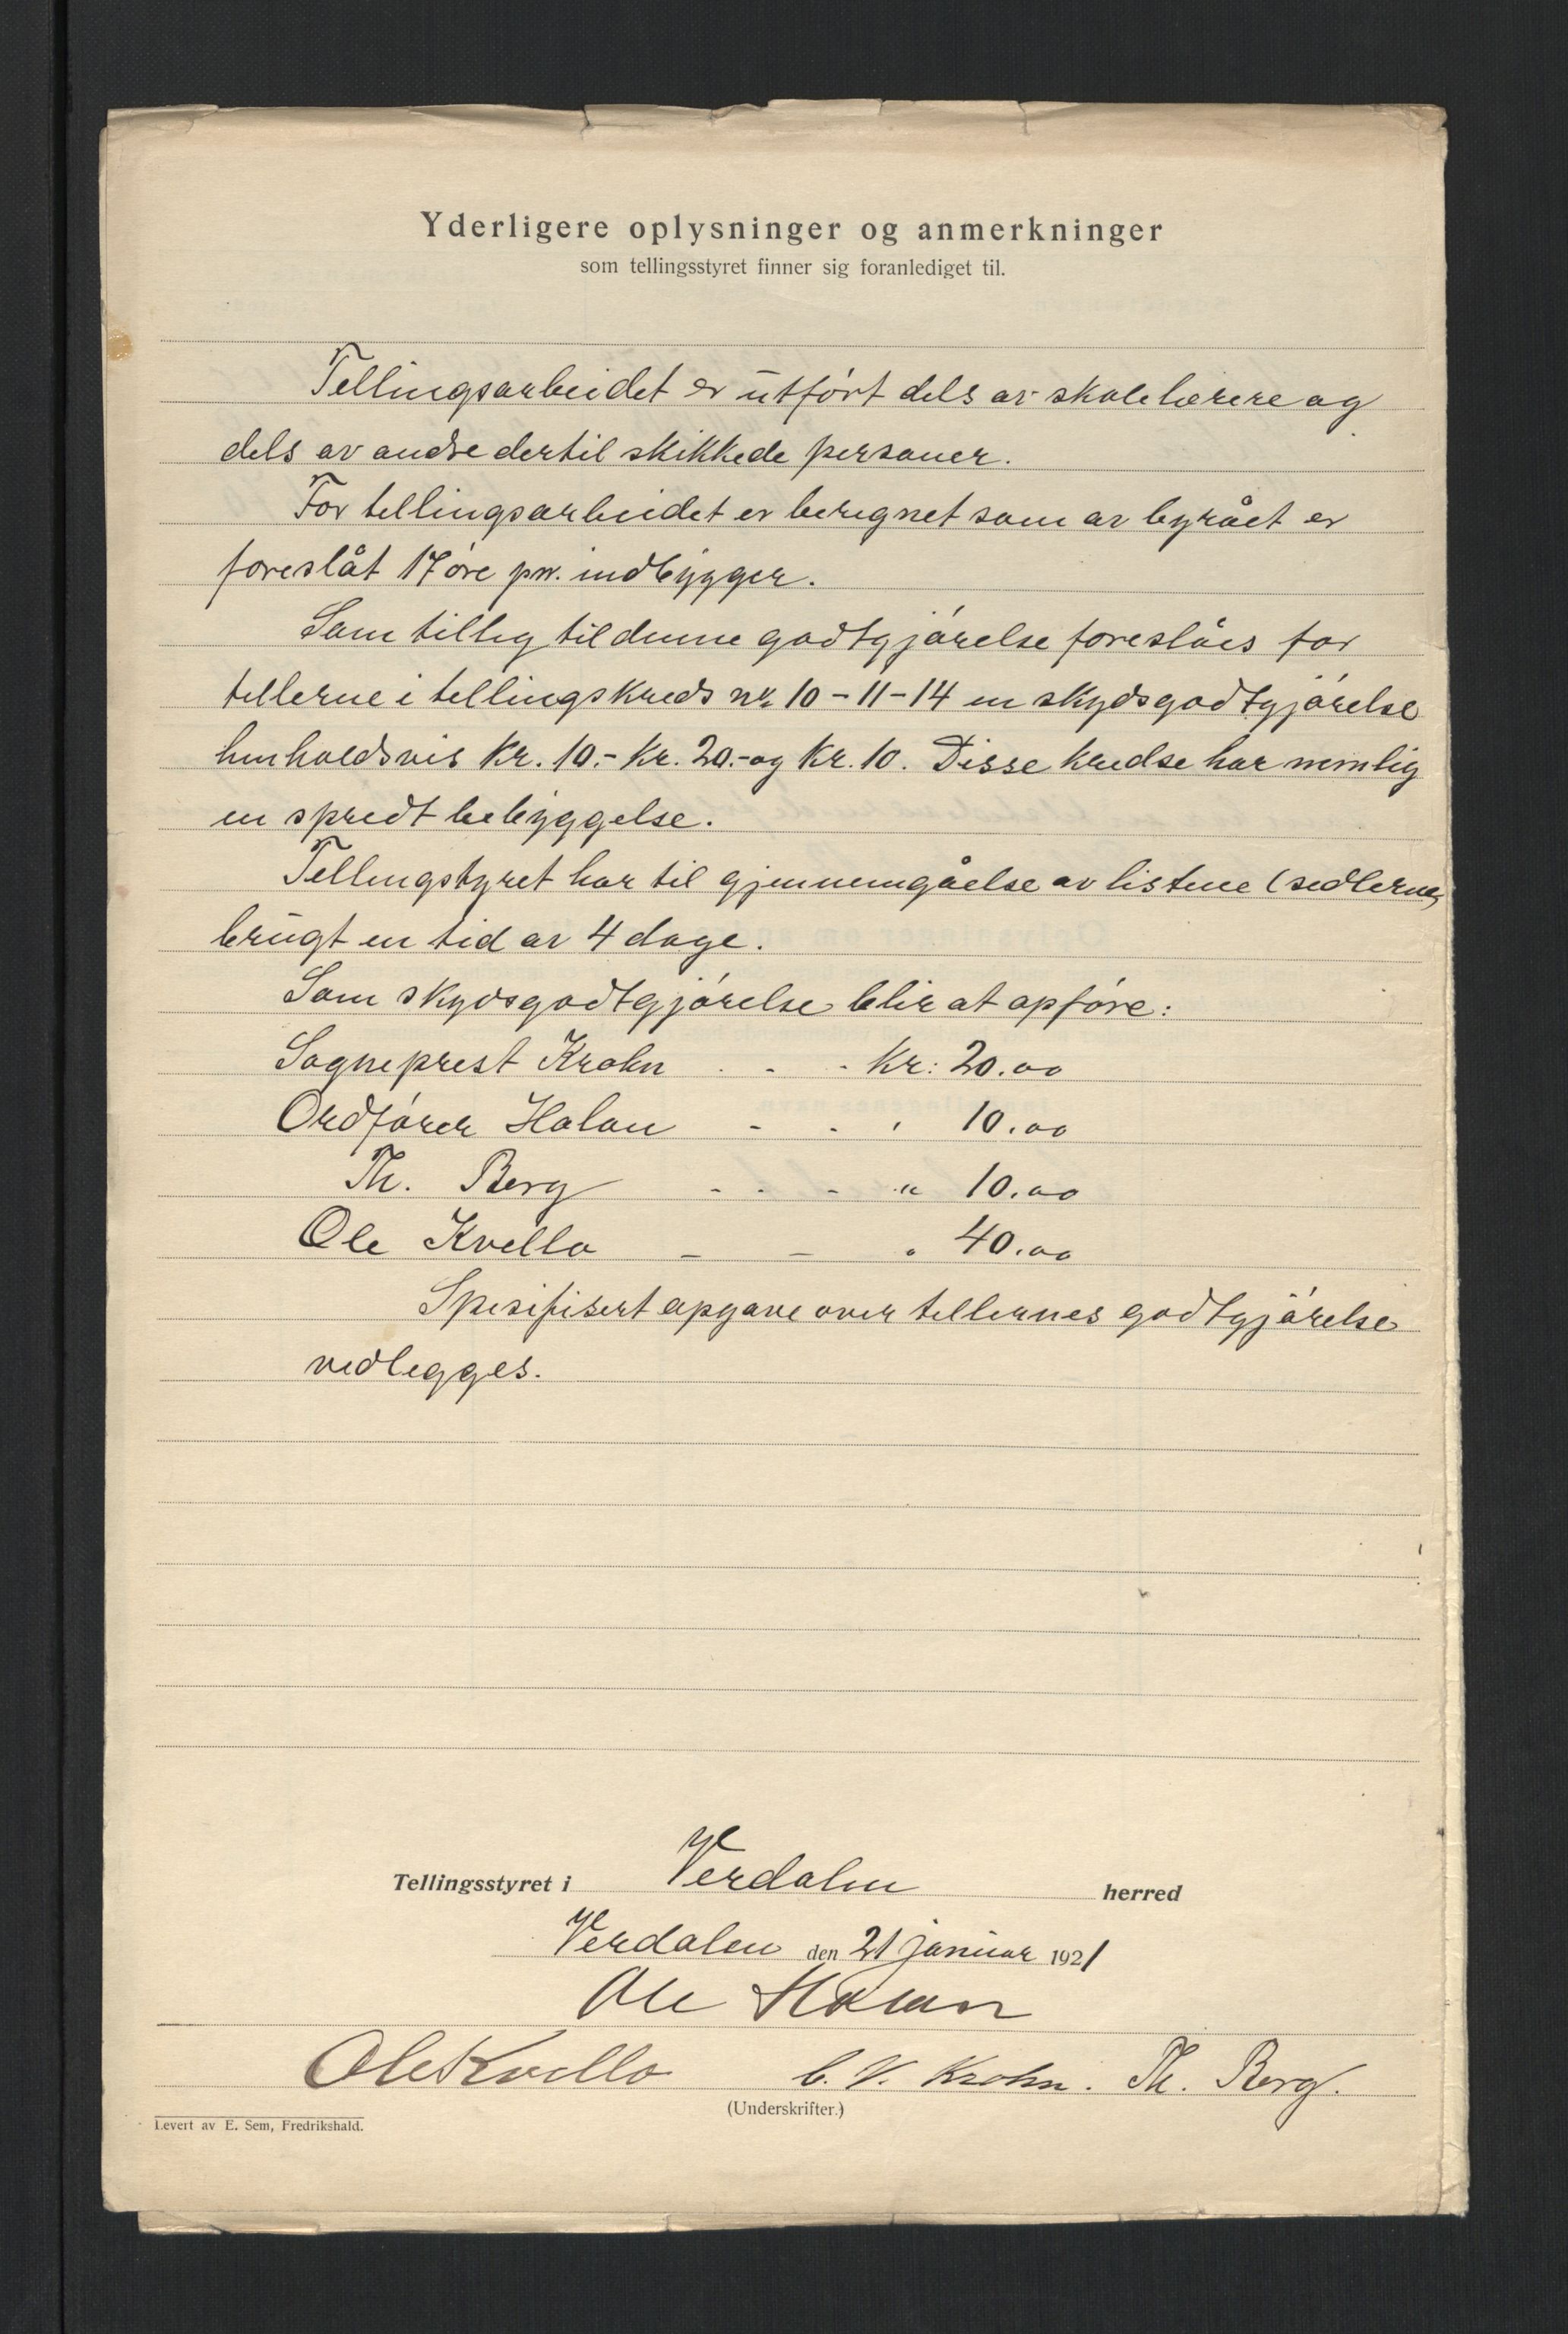 Yderligere oplysninger og anmerkninger
som tellingsstyret finner sig foranlediget til.
Tellingsarbeidet er utført dels av skolelærere og
dels av andre dertil skikkede personer.
For tellingsarbeidet er beregnet som av byrået er
foreslåt 17 øre pr. indbygger.
Som tilleg til denne godtgjørelse foreslåes for
tellerne i tellingskreds nr. 10 - 11 - 14 en skydsgodtgjørelse
henholdsvis Kr. 10.- Kr. 20.- og Kr. 10. Disse kredse har nemlig
en spredt bebyggelse.
Tellingstyret har til gjennemgåelse av listene (sedlerne)
brugt en tid av 4 dage.
Som skydsgodtgjørelse blir at opføre:
Sogneprest Krohn . - . Kr: 20.00
Ordfører Holan - . , 10.00
Th. Berg - . - " 10.00
Ole Kvello - - " 40.00
Spesifisert opgave over tellernes godtgjørelse
vedlegges.
Tellingsstyret i Verdalen herred
Verdalen den 21 januar 1921
Ole Holan
Ole Kvello C. V. Krohn. Th. Berg.
(Underskrifter.)
Levert av E. Sem, Fredrikshald.